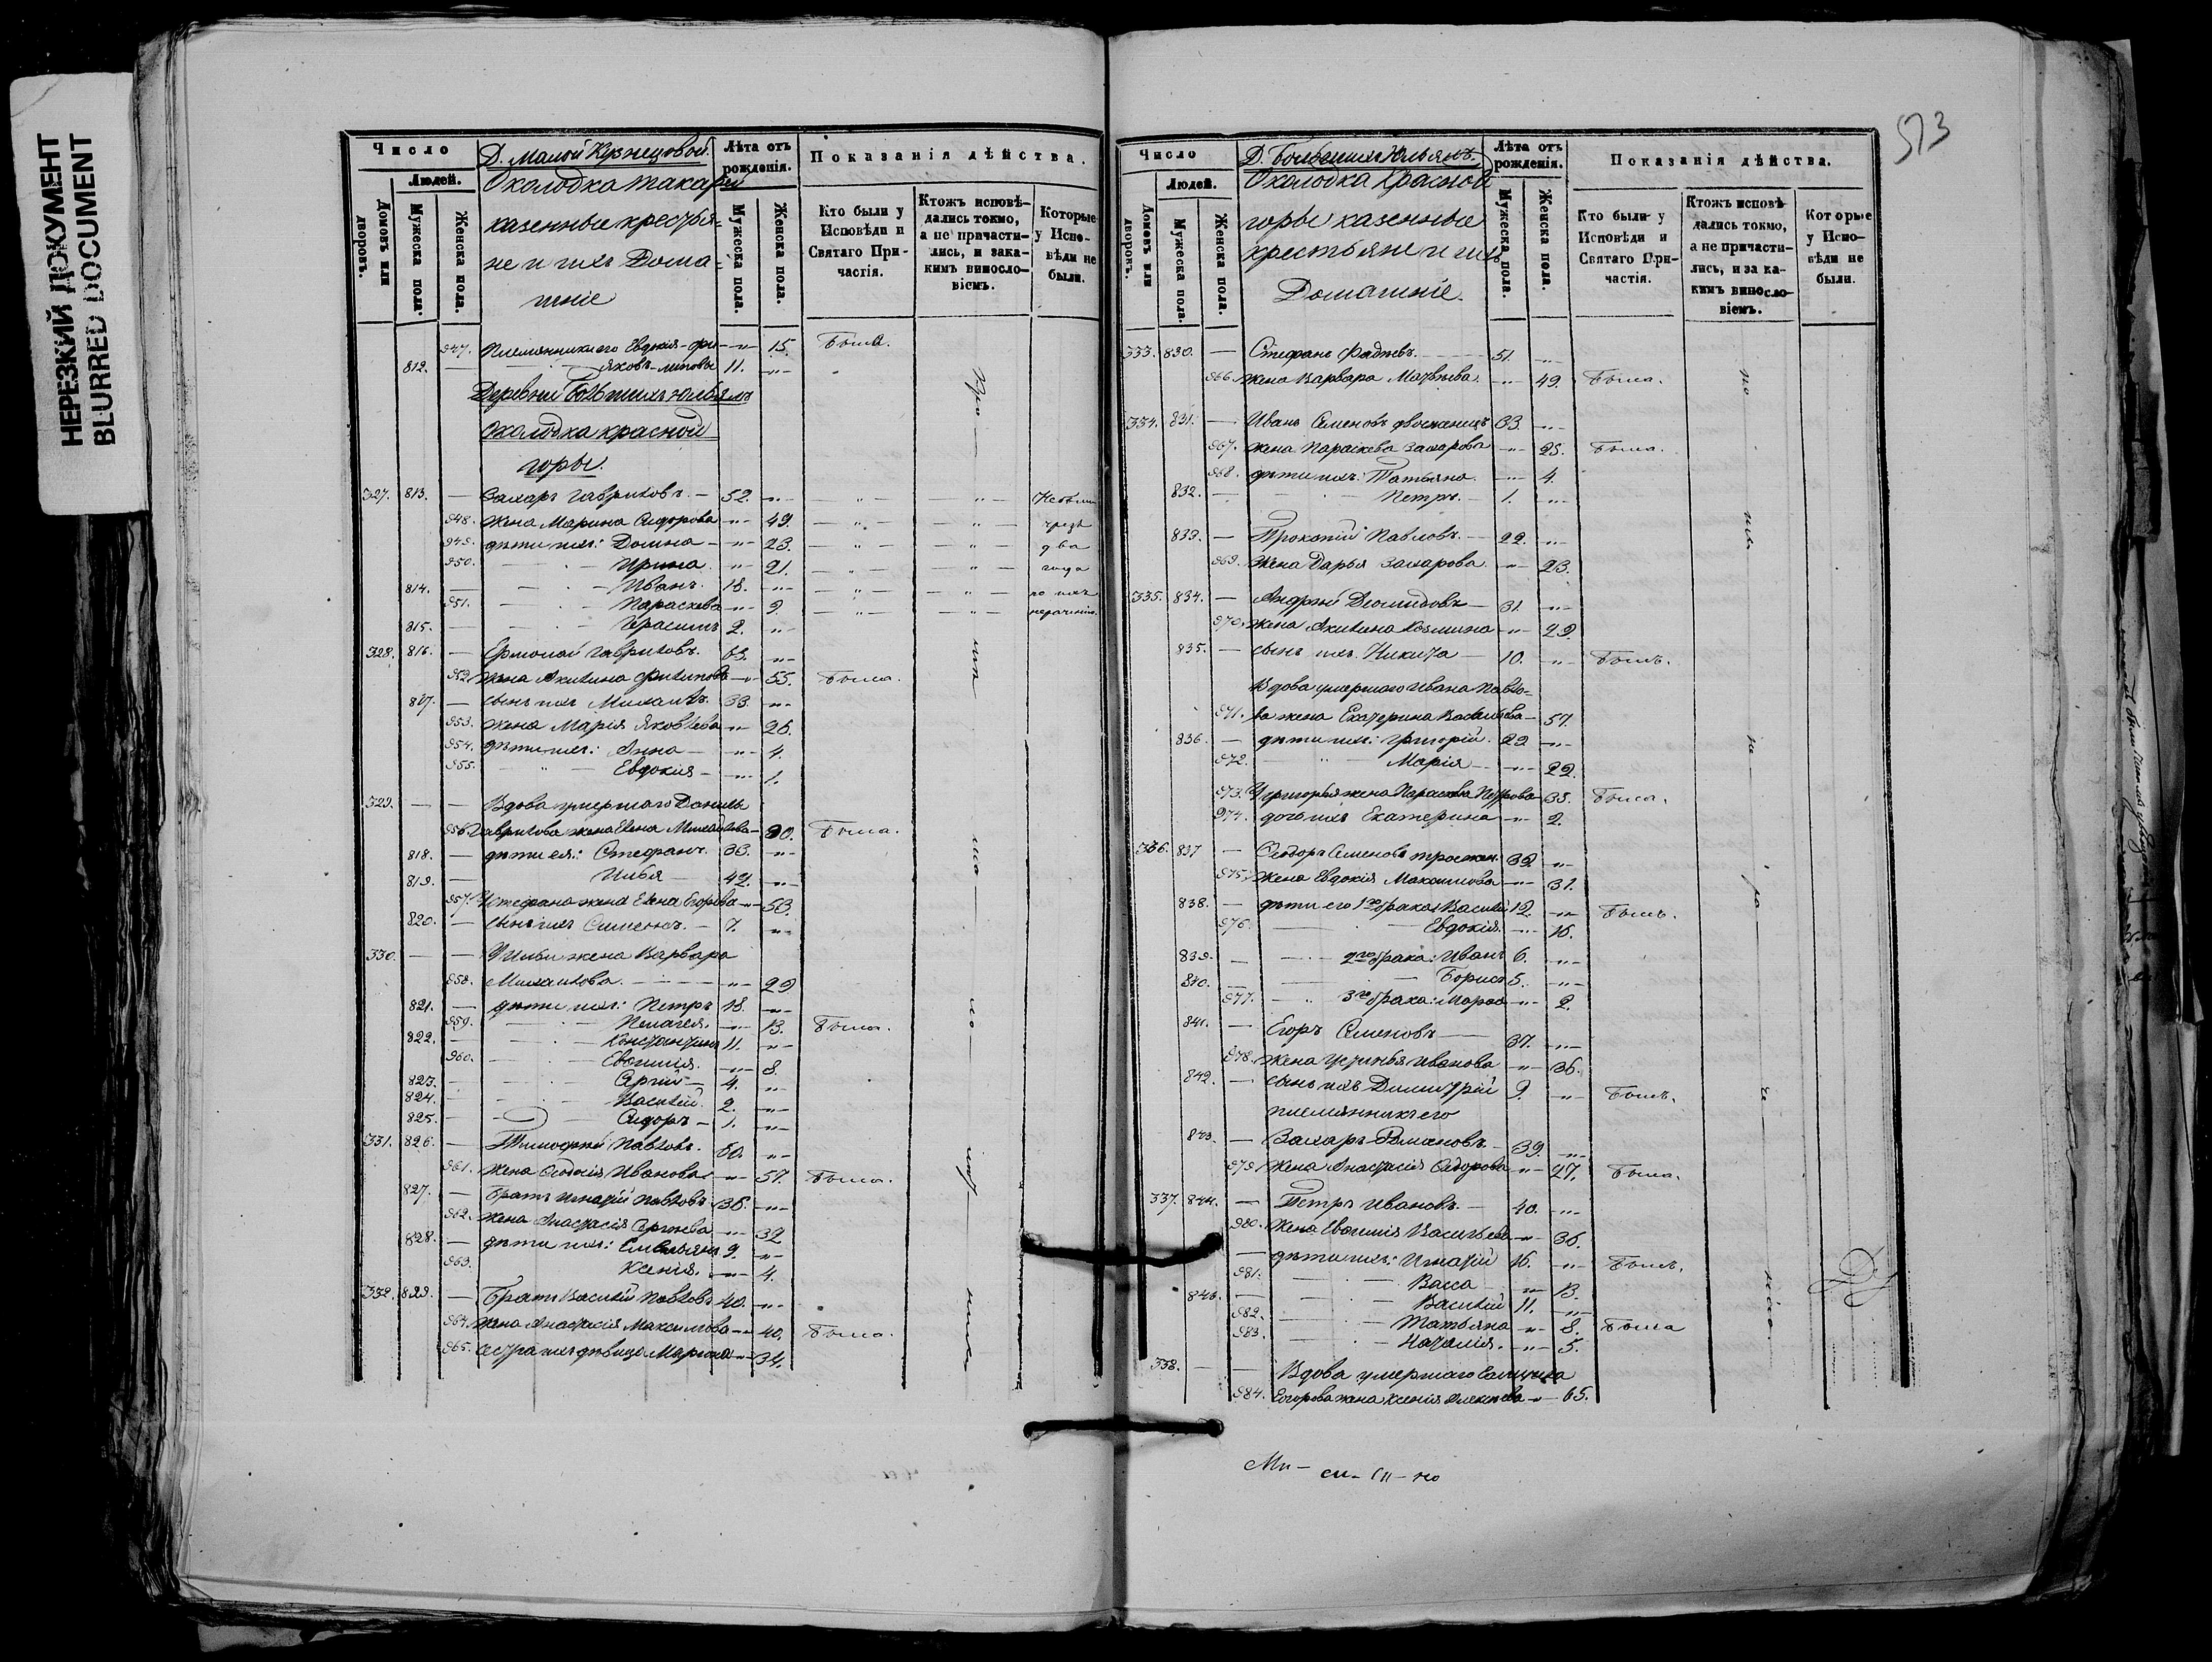 НЕРЕЗКИЙ ДОКУМЕНТ
BLURRED DOCUMENT
Число
Людей.
Домовъ или дворовъ.
Мужеска пола.
Женска пола.
Д. Малой Кузнецовой.
Околодка
казенные крестья-
не и ихъ Дома-
шніе
Лѣта отъ рожденія.
Мужеска пола.
Женска пола.
Показанія дѣйства.
Кто были у Исповѣди и Святаго Причастія.
Ктожъ исповѣдались токмо, а не причастились, и закакимъ винословіемъ.
Которые у Исповѣди не были.
947. Племянники его Евдокія - „ - 15. Была.
812. — Яковъ 11. - „ -
Деревни Большихъ
Околодка красной
горы.
327. 813. — Захаръ Гавриловъ. — 52. - „ - Небыли
948. жена Марина Сидорова - „ - 49.
949. дѣти ихъ: Домна - „ - 23. два
950. Ирина - „ - 21. года
814. Иванъ. 18. - „ - по ихъ
951. Параскева - „ - 9. нераченію.
815. Герасимъ 2. - „ -
328. 816. — Ермолай Гавриловъ. 63. - „ -
952. жена Акилина Филипова - „ - 55. Была.
817. — сынъ ихъ Михаилъ. 33. - „ -
953. жена Марія Яковлева - „ - 26.
954. дѣти ихъ: Анна - „ - 4.
955. Евдокія - „ - 1.
329. — — Вдова умершаго Данилы
956. Гаврилова жена Елена Михайлова - 80. Была.
818. — дѣти ея: Стефанъ. 33. - „ -
819. — Илья 42. - „ -
957. У Стефана жена Елена Егорова - „ - 53.
820. — сынъ ихъ Симеонъ. — 7. - „ -
330. — — У Ильи жена Варвара
958. Михаилова. - „ - 29
821. — дѣти ихъ: Петръ 18. - „ -
959. Пелагея. - „ - 13. Была.
822. Константинъ 11. - „ -
960. Евѳимія. - „ - 8.
823. Сергій 4. - „ -
824. Василій. 2. - „ -
825. Сидоръ 1. - „ -
331. 826. — Тимоѳей Павловъ. 50. - „ -
961. жена Ѳеодосія Иванова - „ - 57. Была.
827. — братъ Игнатій Павловъ 36. - „ -
962. жена Анастасія Сергѣева - „ - 32
828. — дѣти ихъ: Емельянъ 9. - „ -
963. Ксенія. - „ - 4.
332. 829. — Братъ Василій Павловъ 40. - „ -
964. жена Анастасія Максимова - „ - 40. Была.
965. сестра ихъ дѣвица Марина - „ - 34.
573
Число
Людей.
Домовъ или дворовъ.
Мужеска пола.
Женска пола.
Д. Большихъ
Околодка Красной
горы казенные
крестьяне и ихъ
Домашніе.
Лѣта отъ рожденія.
Мужеска пола.
Женска пола.
Показанія дѣйства.
Кто были у Исповѣди и Святаго Причастія.
Ктожъ исповѣдались токмо, а не причастились, и за какимъ винословіемъ.
Которые у Исповѣди не были.
333. 830. — Стефанъ 51. - „ -
966. жена Варвара Матвѣева. - „ - 49. Была.
334. 831. — Иванъ Семеновъ двоеженецъ 33 - „ -
967. жена Параскева Захарова - „ - 25. Была.
968. дѣти ихъ: Татьяна. - „ - 4.
832. Петръ. 1. - „ -
833. — Прокопій Павловъ. 22. - „ -
969. жена Дарья Захарова. - „ - 23.
335. 834. — Андрей Деомидовъ 31. - „ -
970. жена Акилина Козмина - „ - 29.
835. — сынъ ихъ Никита 10. - „ - Былъ.
Вдова умершаго Ивана Павло-
971. ва жена Екатерина Васильева - 57.
836. — дѣти ихъ: Григорій. 29 - „ -
972. Марія - „ - 22.
973. У Григорья жена Параскева Петрова - 35. Была.
974. дочь ихъ Екатерина - „ - 2.
336. 837 — Ѳеодоръ Семеновъ троежен. 39. - „ -
975. жена Евдокія Максимова - „ - 31.
838. — дѣти его 1го брака: Василій 12. - „ - Былъ.
976. Евдокія. - „ - 16.
839. — 2го брака: Иванъ 6. - „ -
840. Борисъ 5. - „ -
977. 3го брака: - „ - 2.
841. — Егоръ Семеновъ 37. - „ -
978. жена Устинья Иванова - „ - 36.
842. — сынъ ихъ Димитрій 9. - „ - Былъ.
племянникъ его
843. — Захаръ Романовъ 39. - „ -
979. жена Анастасія Сидорова - „ - 27. Была.
337. 844. — Петръ Ивановъ. 40. - „ -
980. жена Евѳимія Васильева - „ - 36.
— дѣти ихъ: Игнатій 16. - „ - Былъ.
981. Васса - „ - 13.
846. Василій 11. - „ -
982. Татьяна - „ - 8. Была
983. Наталія. - „ - 5.
338. — — Вдова умершаго
984. Егорова жена Ксенія - „ - 65.